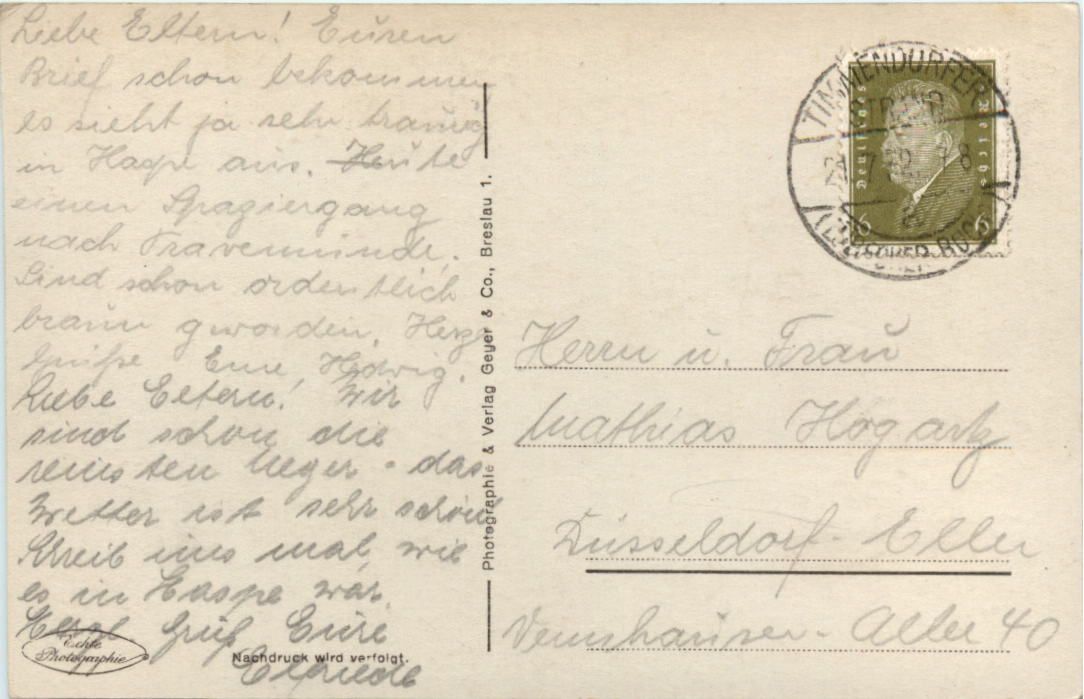 Liebe Eltern! Euren
Brief schon bekommen
es sieht ja sehr traurig
in Haspe aus. Heute
einen Spaziergang
nach Travemünde.
Sind schon ordentlich
braun geworden. Herzl
Grüße Eure Hedwig.
Liebe Eltern! Wir
sind schon die
reinsten Neger. das
Wetter ist sehr schön
Schreib uns mal, wie
es in Haspe war.
Herzl Gruß Eure
Elfriede
Echte
Photographie
Nachdruck wird verfolgt.
Photographie & Verlag Geyer & Co., Breslau 1.
TIMMENDORFER
STRAND
7
8
Deutsches Reich
6 6
Herrn u. Frau
Mathias Hogartz
Düsseldorf-Eller
Vennhauser-Allee 40